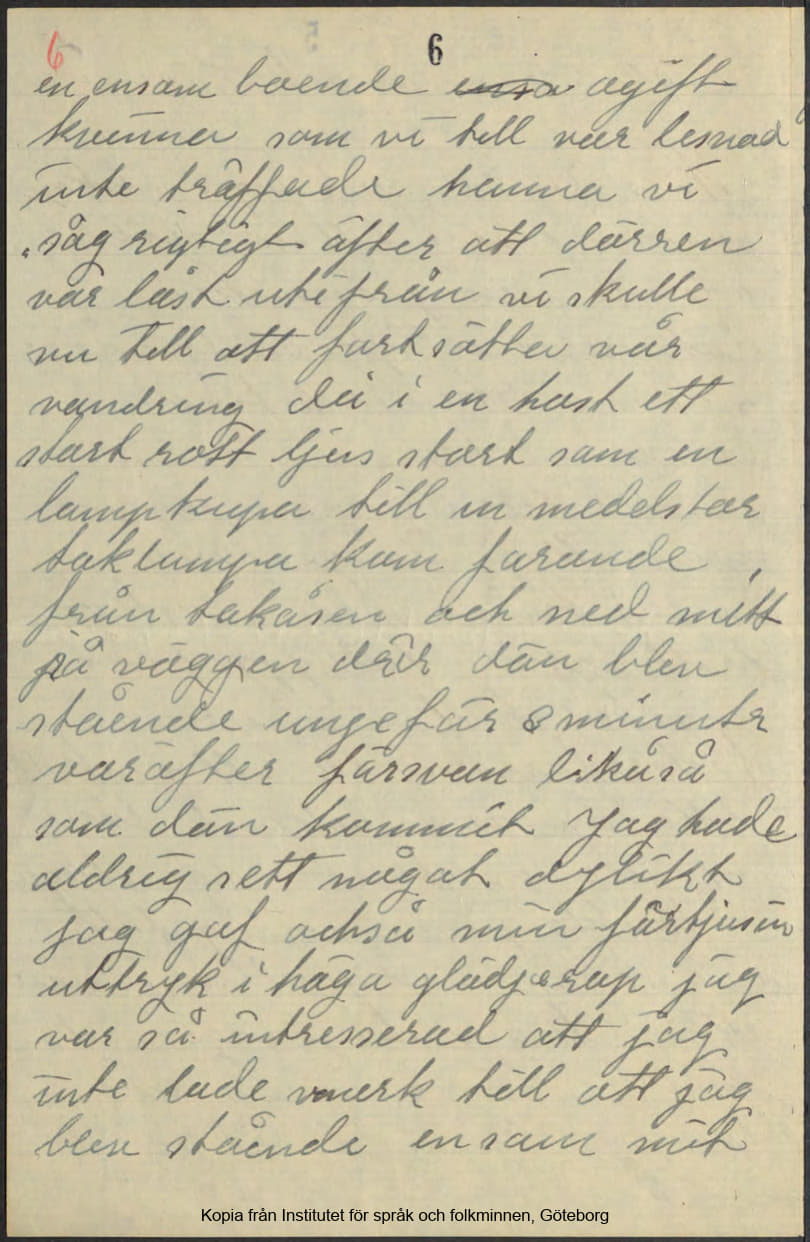 6 6
en ensam boende ensa ogift
kvinna som vi till vår lesnad
inte träffade hemma vi
såg rigtigt äfter att dörren
var låst utifrån vi skulle
nu till att fortsätta vår
vandring då i en hast ett
stort rött ljus stort som en
lampkupa till en medelstor
taklampa kom farande
från takåsen och ned mitt
på väggen där dän blev
stående ungefär 8 minuter
varäfter försvan likåså
som dän kommit Jag hade
aldrig sett något dylikt
jag gaf också min förtjusin
uttryk i höga glädjerop jag
var så intresserad att jag
inte lade merk till att jag
blev stående ensam mitt
Kopia från Institutet för språk och folkminnen, Göteborg